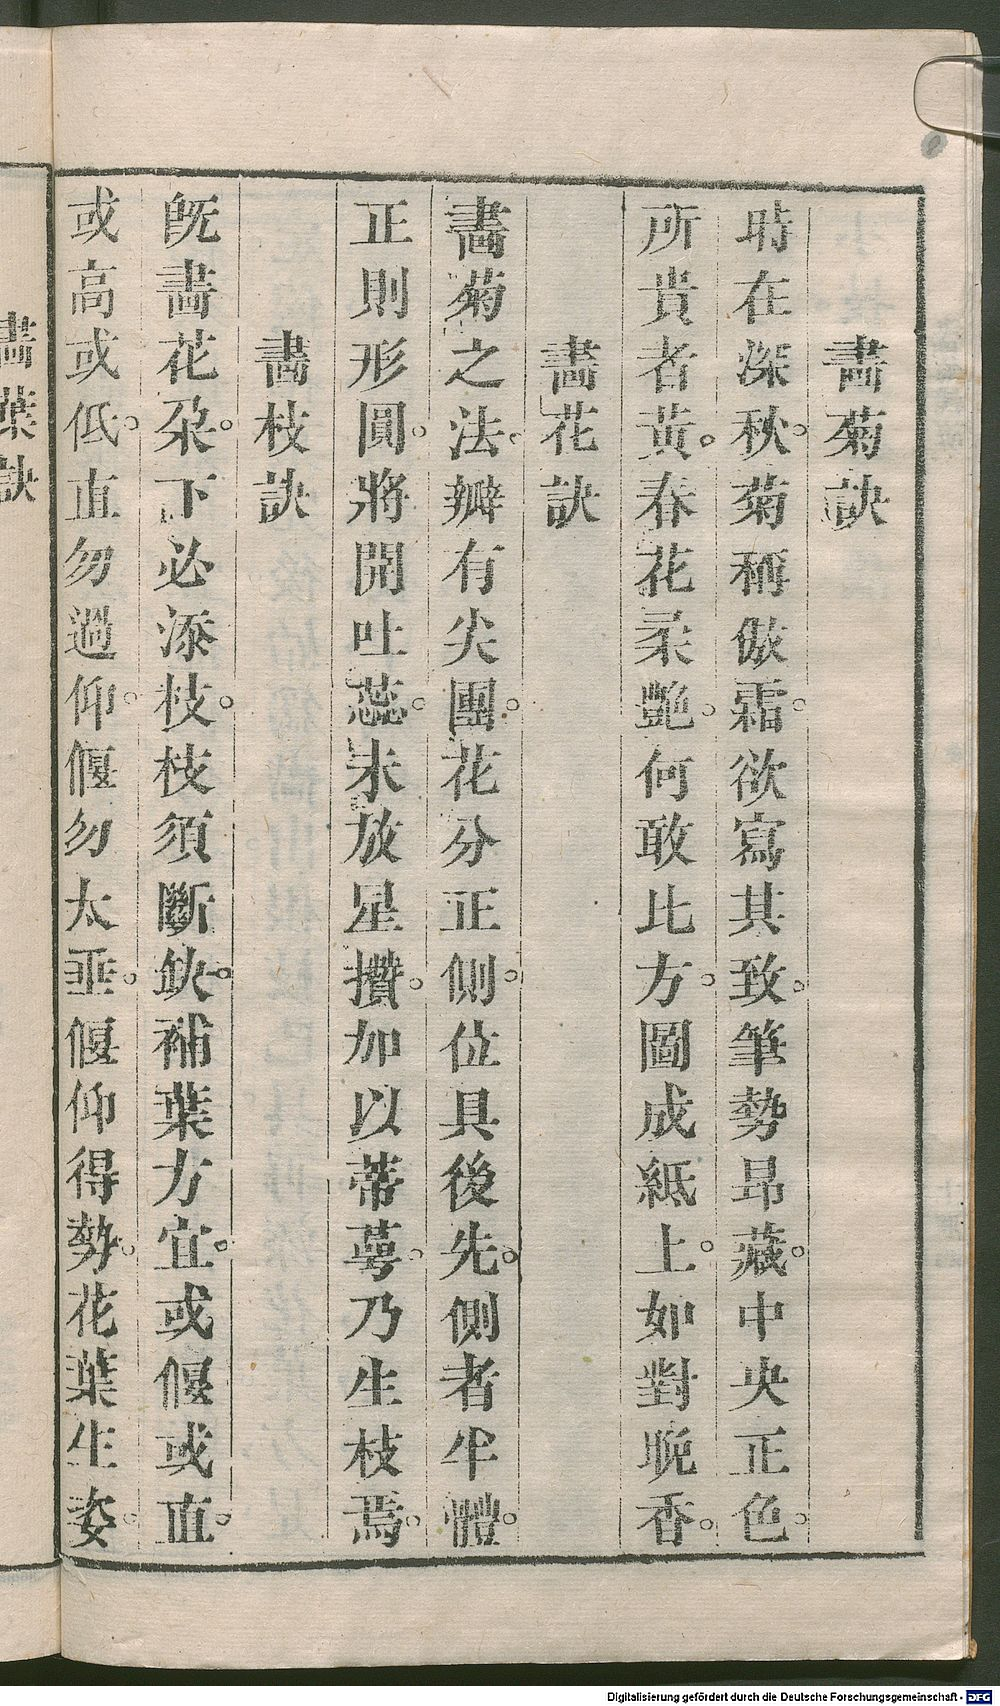 畫菊訣
時在深秋。菊稱傲霜。欲寫其致。筆勢昂藏。中央正色。
所貴者黃。春花柔艷。何敢比方。圖成紙上。如對晚香。
畫花訣
畫菊之法。瓣有尖團。花分正側。位具後先。側者半體。
正則形圓。將開吐蕊。未放星攢。加以蒂萼。乃生枝焉。
畫枝訣
旣畫花朶。下必添枝。枝須斷缺。補葉方宜。或偃或直。
或高或低。直勿過仰。偃勿太垂。偃仰得勢。花葉生姿。
畫葉訣
Digitalisierung gefördert durch die Deutsche Forschungsgemeinschaft - DFG